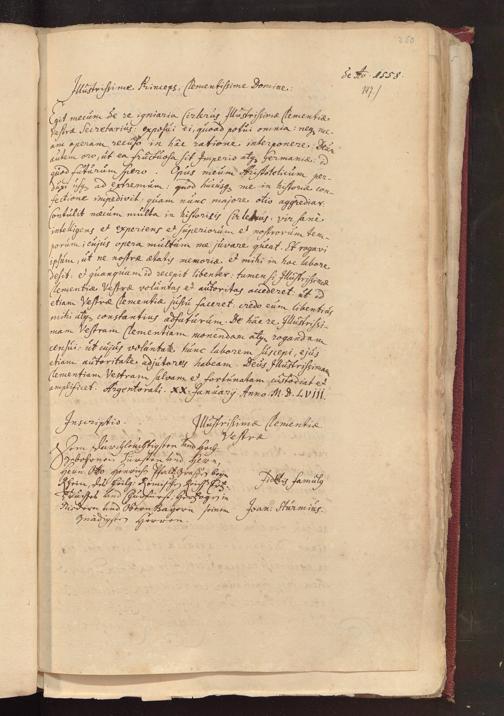 280
de Aō. 1558.
Illustrissime Princeps, Clementissime Domine.
Egit mecum de re igniaria Cirlerus Illustrissimæ Clementiæ
Vestræ Secretarius: exposui ei, quoad potui omnia: neq. me-
am operam recuso in hac ratione interponere. Deum
autem oro, ut ea fructuosa sit Imperio atq. Germaniæ: id
quod futurum spero. Opus meum Aristotelicum per-
duxi usq. ad extremum: quod hucusq. me in historiæ con-
fectione impedivit: quam nunc majore otio aggrediar.
Contulit mecum multa in historijs Cirlerus, vir sane
intelligens et experiens et superiorum et nostrorum tem-
porum: cujus opera multum me juvare queat. Et rogavi
ipsum, ut ne nostræ ætatis memoriæ et mihi in hac labore
desit. et quanquam id recepit libenter: tamen si Illustrissimæ
Clementiæ Vestræ voluntas et autoritas accederet, ut id
etiam Vestræ Clementiæ jussu faceret: credo eum libentius
mihi atq. constantius adfuturum. De hac re Illustrissi-
mam Vestram Clementiam monendam atq. rogandam
censui: ut cujus voluntate hunc laborem suscepi, ejus
etiam autoritate adjutores habeam. Deus Illustrissimam
Clementiam Vestram salvam et fortunatam custodiat et
amplificet. Argentorati. XX. Januarij Anno M. D. LVIII.
Inscriptio. Illustrissimæ Clementiæ
Vestræ
Dem Durchleuchtigsten und Hoch
gebohrnen Fürsten und Herrn,
Herrn Otto Heinrich Pfaltzgraffen beÿ
Rhein, des heÿl. Römischen Reichs Ertz
Truchseß und Churfürst, Hertzog in
Nidern und Obern Bayern seinem
gnädigsten Herren.
Joan. Sturmius.